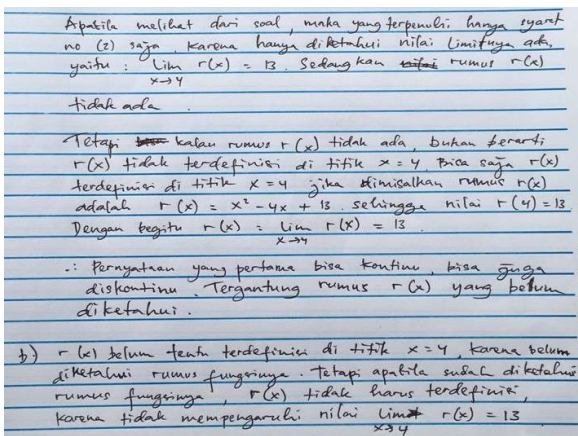 Apabila melihat dari soal, maka yang terpenuhi hanya syarat
no (2) saja. Karena hanya diketahui nilai limitnya ada,
yaitu : lim r(x) = 13. Sedangkan rumus r(x)
x→4
tidak ada.
Tetapi kalau rumus r(x) tidak ada, bukan berarti
r(x) tidak terdefinisi di titik x = 4. Bisa saja r(x)
terdefinisi di titik x = 4 jika dimisalkan rumus r(x)
adalah r(x) = x² - 4x + 13. sehingga nilai r(4) = 13.
Dengan begitu r(x) = lim r(x) = 13.
x→4
∴ Pernyataan yang pertama bisa kontinu, bisa juga
diskontinu. Tergantung rumus r(x) yang belum
diketahui.
b) r(x) belum tentu terdefinisi di titik x = 4, karena belum
diketahui rumus fungsinya. Tetapi apabila sudah diketahui
rumus fungsinya, r(x) tidak harus terdefinisi,
karena tidak mempengaruhi nilai lim r(x) = 13
x→4